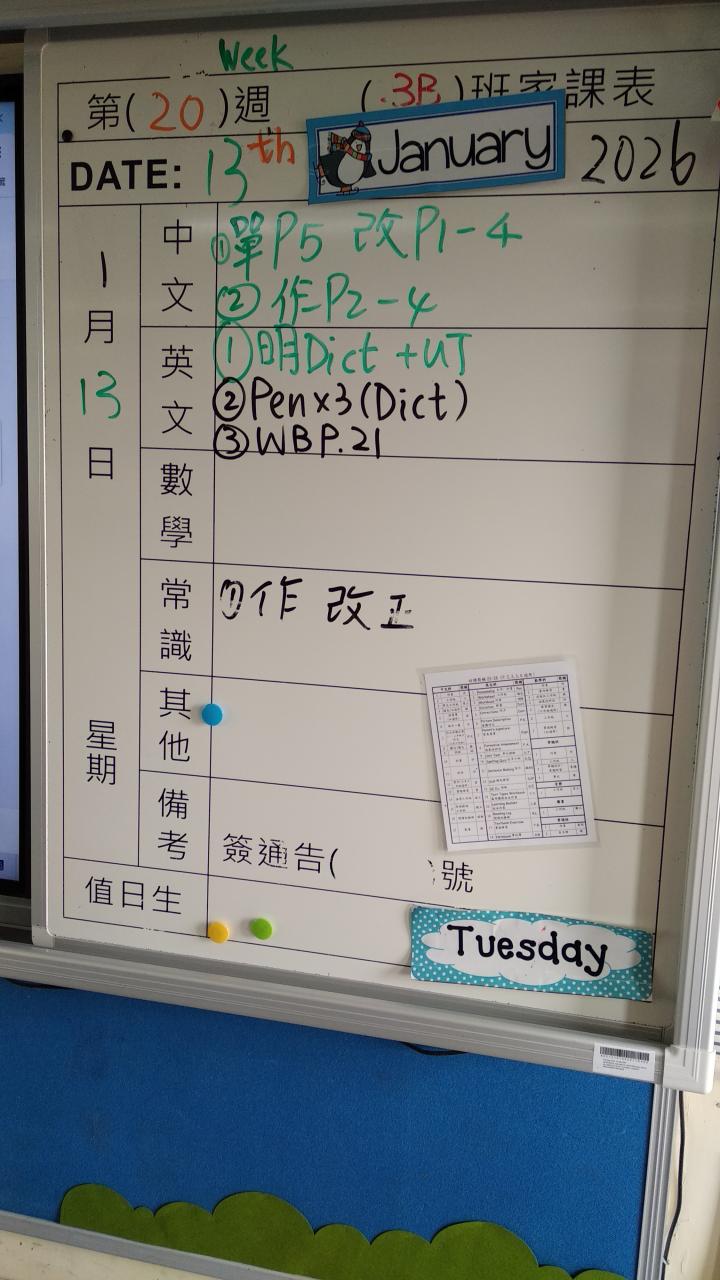 Week
第(20)週 (3B)班家課表
DATE: 13th January 2026
1月13日
星期
中文
①單P5 改P1-4
②作P2-4
英文
①明Dict +UT
②Pen×3(Dict)
③WBP.21
數學
常識
①作 改正
其他
備考
簽通告( )號
值日生
Tuesday